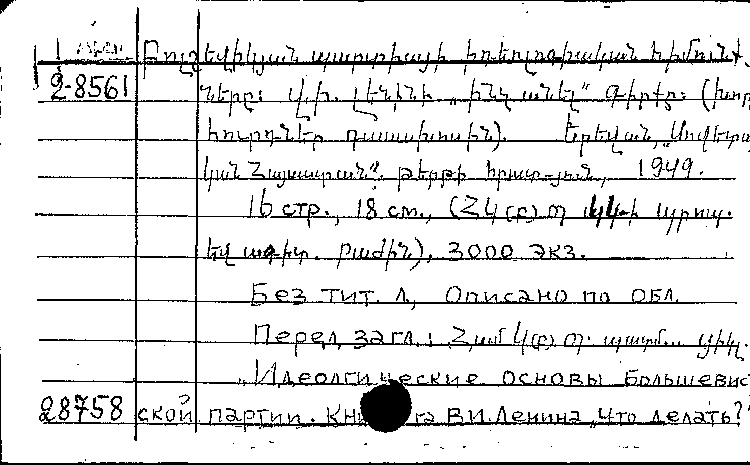 Բոլշևիկյան պարտիայի իդեոլոգիական հիմունք
2-8561 ները։ Վ.Ի. Լենինի „Ինչ անել“ գիրքը։ (խոր
հուրդներ դասախոսին). Երևան, „Սովետա
կան Հայաստան“. թերթի հրատ-յուն, 1949.
16 стр., 18 см., (ՀԿ(բ)Պ ԿԿ-ի պրոպ.
եվ ագիտ. բաժին), 3000 экз.
Без тит. л, Описано по обл.
Перед загл.: Համկ(բ)Պ պատմ.. ցիկլ.
„Идеологические основы большевис
28758 ской партии. Книга В.И.Ленина „Что делать?"